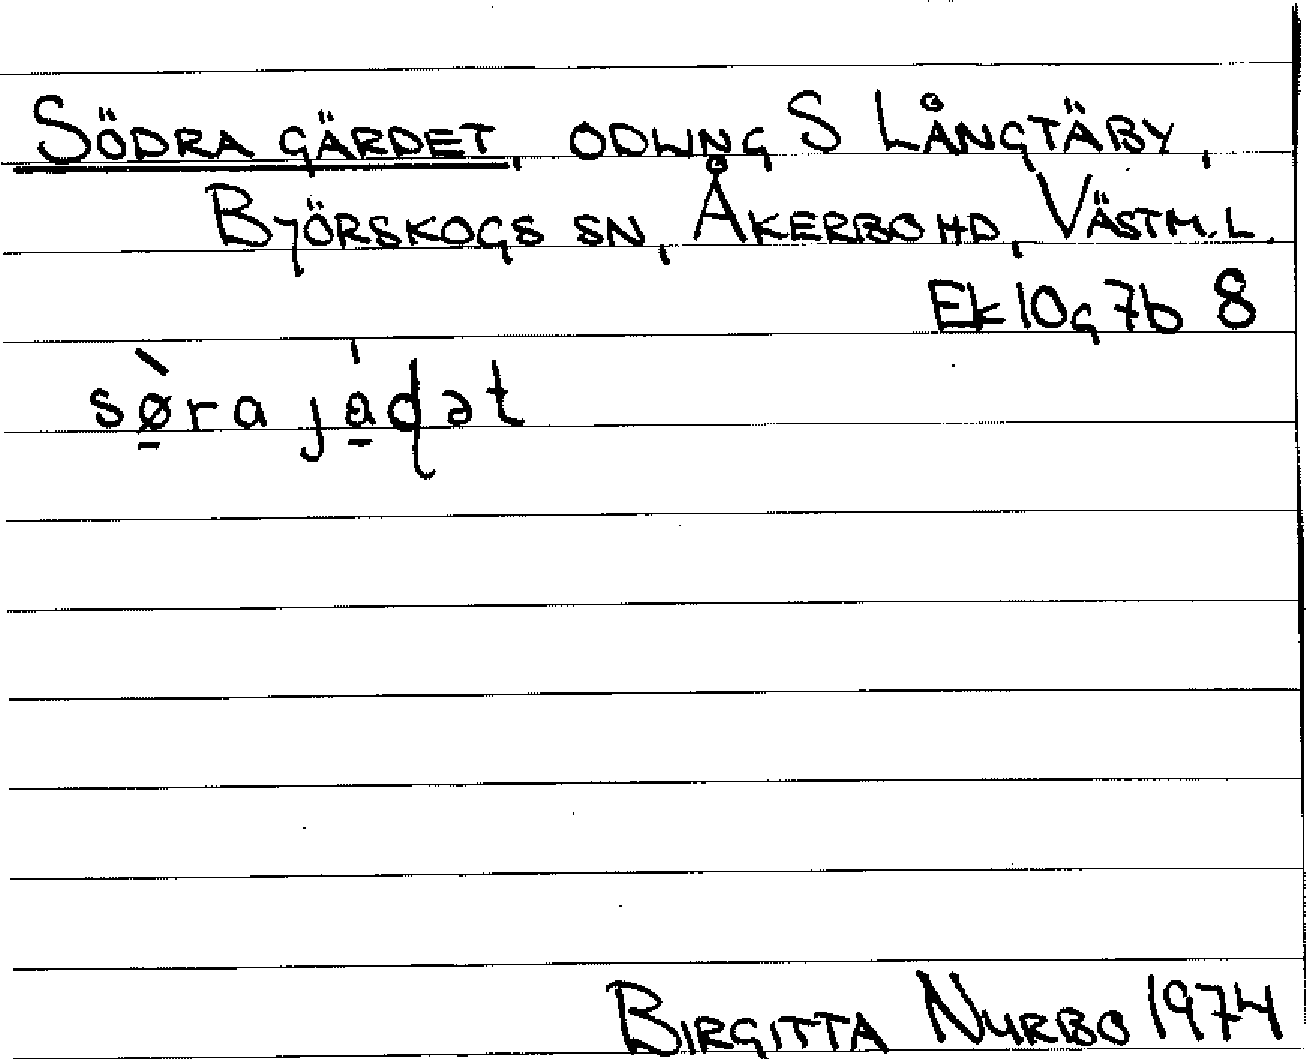 SÖDRA GÄRDET, ODLING S LÅNGTÄBY,
BJÖRSKOGS SN, ÅKERBO HD, VÄSTM. L.
Ek 10g 7b 8
sø̱̀ra já̱ɖət
BIRGITTA NURBO 1974